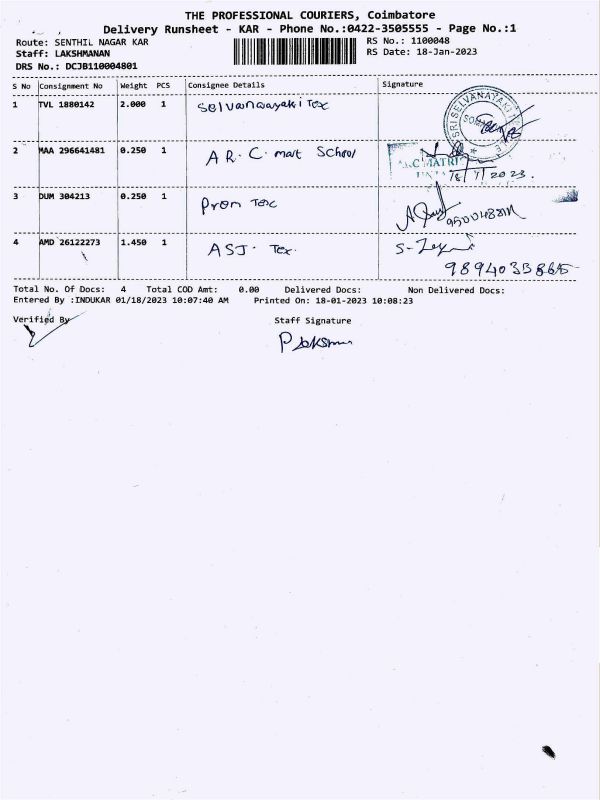 THE PROFESSIONAL COURIERS, Coimbatore
Delivery Runsheet - KAR - Phone No.:0422-3505555 - Page No.:1
Route: SENTHIL NAGAR KAR RS No.: 1100048
Staff: LAKSHMANAN RS Date: 18-Jan-2023
DRS No.: DCJB110004801
S No Consignment No Weight PCS Consignee Details Signature
1 TVL 1880142 2.000 1 Selvanayaki Tex
SRI SELVANAYAKI
2 MAA 296641481 0.250 1 A R. C. mat School
MATRI
18/1/2023.
3 DUM 304213 0.250 1 Prem Tex
4 AMD 26122273 1.450 1 ASJ. Tex.
Total No. Of Docs: 4 Total COD Amt: 0.00 Delivered Docs: Non Delivered Docs:
Entered By :INDUKAR 01/18/2023 10:07:40 AM Printed On: 18-01-2023 10:08:23
Verified By Staff Signature